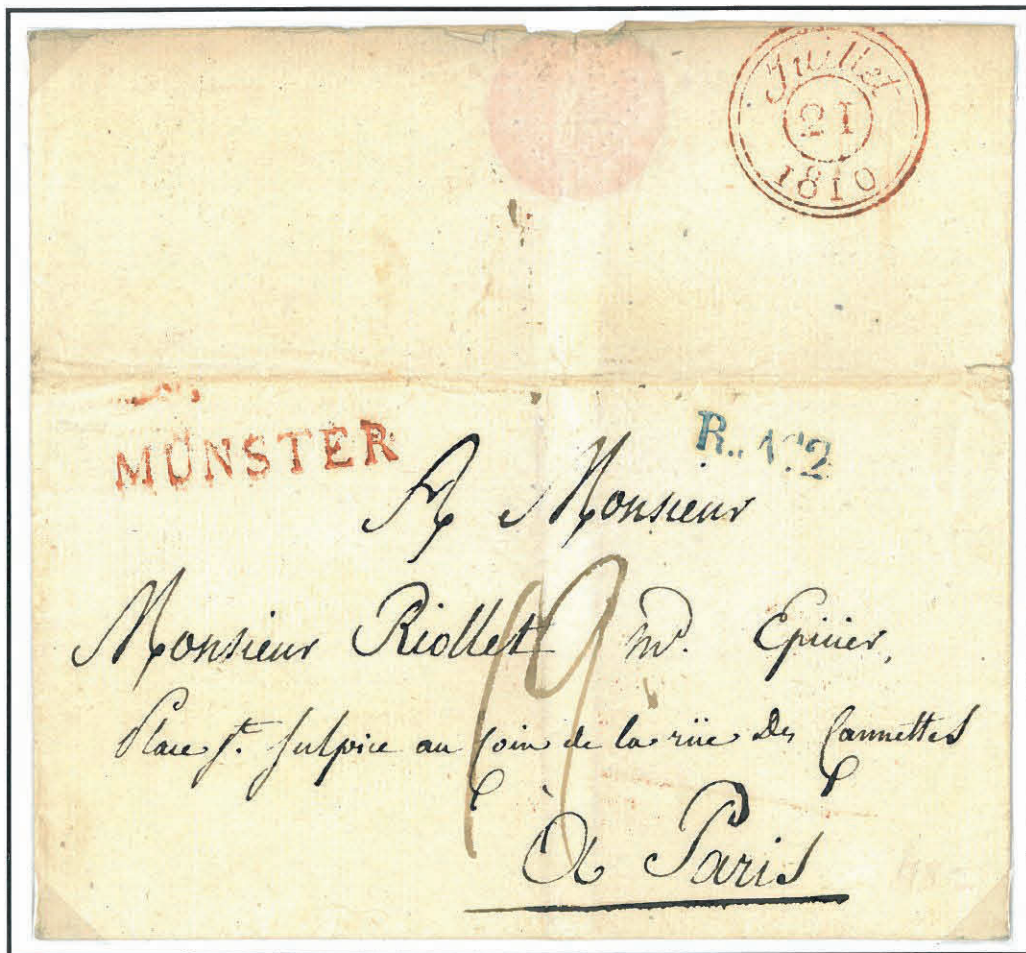 Juillet
21
1810
MÜNSTER
R.. N°2
A Monsieur
Monsieur Riollet md. Epicier,
Place St. Sulpice au Coin de la rüe Des Cannettes
19
à Paris